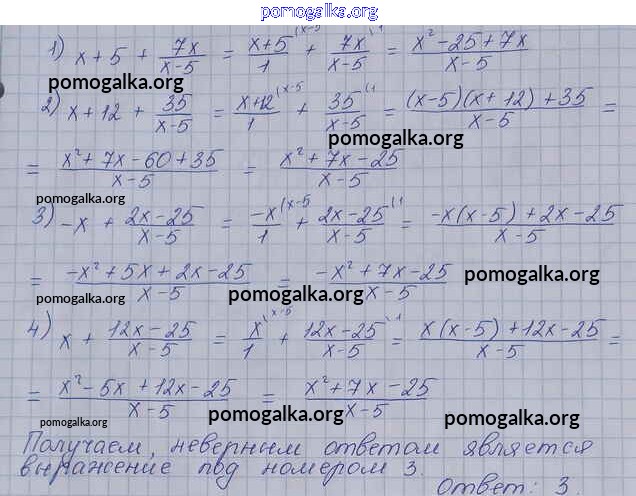 pomogalka.org
1) x+5 + 7x/(x-5) = (x+5)/1 (x-5 + 7x/(x-5) (1 = (x²-25+7x)/(x-5)
pomogalka.org
2) x+12 + 35/(x-5) = (x+12)/1 (x-5 + 35/(x-5) (1 = ((x-5)(x+12)+35)/(x-5) =
pomogalka.org
= (x²+7x-60+35)/(x-5) = (x²+7x-25)/(x-5)
pomogalka.org
3) -x + (2x-25)/(x-5) = -x/1 (x-5 + (2x-25)/(x-5) (1 = (-x(x-5)+2x-25)/(x-5)
= (-x²+5x+2x-25)/(x-5) = (-x²+7x-25)/(x-5)
pomogalka.org
pomogalka.org pomogalka.org
4) x + (12x-25)/(x-5) = x/1 (x-5 + (12x-25)/(x-5) (1 = (x(x-5)+12x-25)/(x-5) =
= (x²-5x+12x-25)/(x-5) = (x²+7x-25)/(x-5)
pomogalka.org pomogalka.org pomogalka.org
Получаем, неверным ответом является
выражение под номером 3.
Ответ: 3